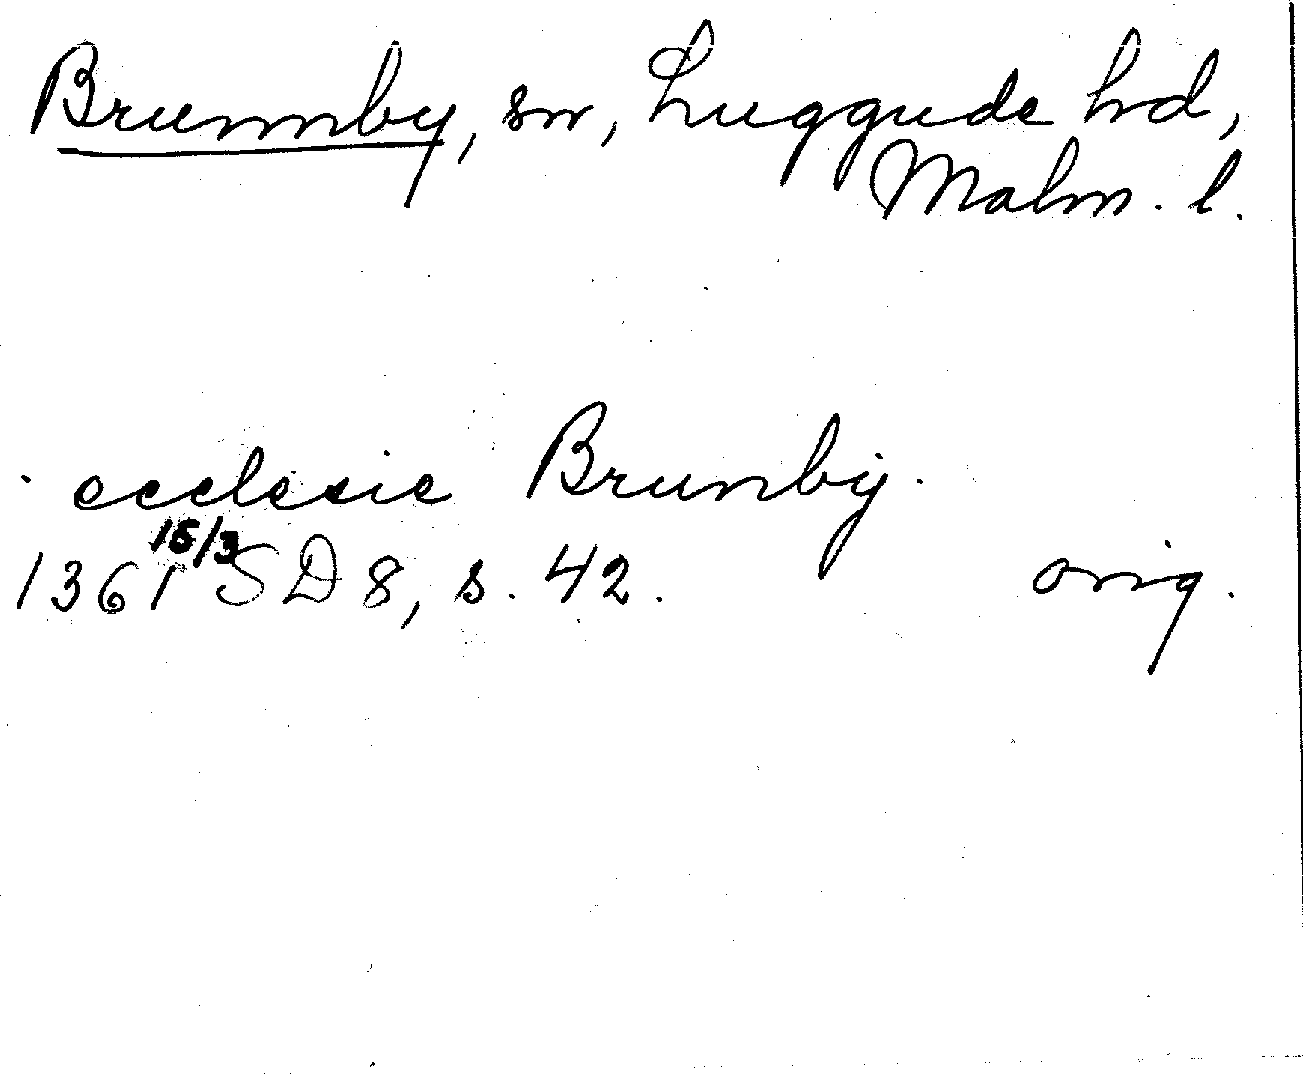 Brunnby, sn, Luggude hd,
Malm. l.
ecclesie Brunby.
15/3
1361 SD 8, s. 42. orig.